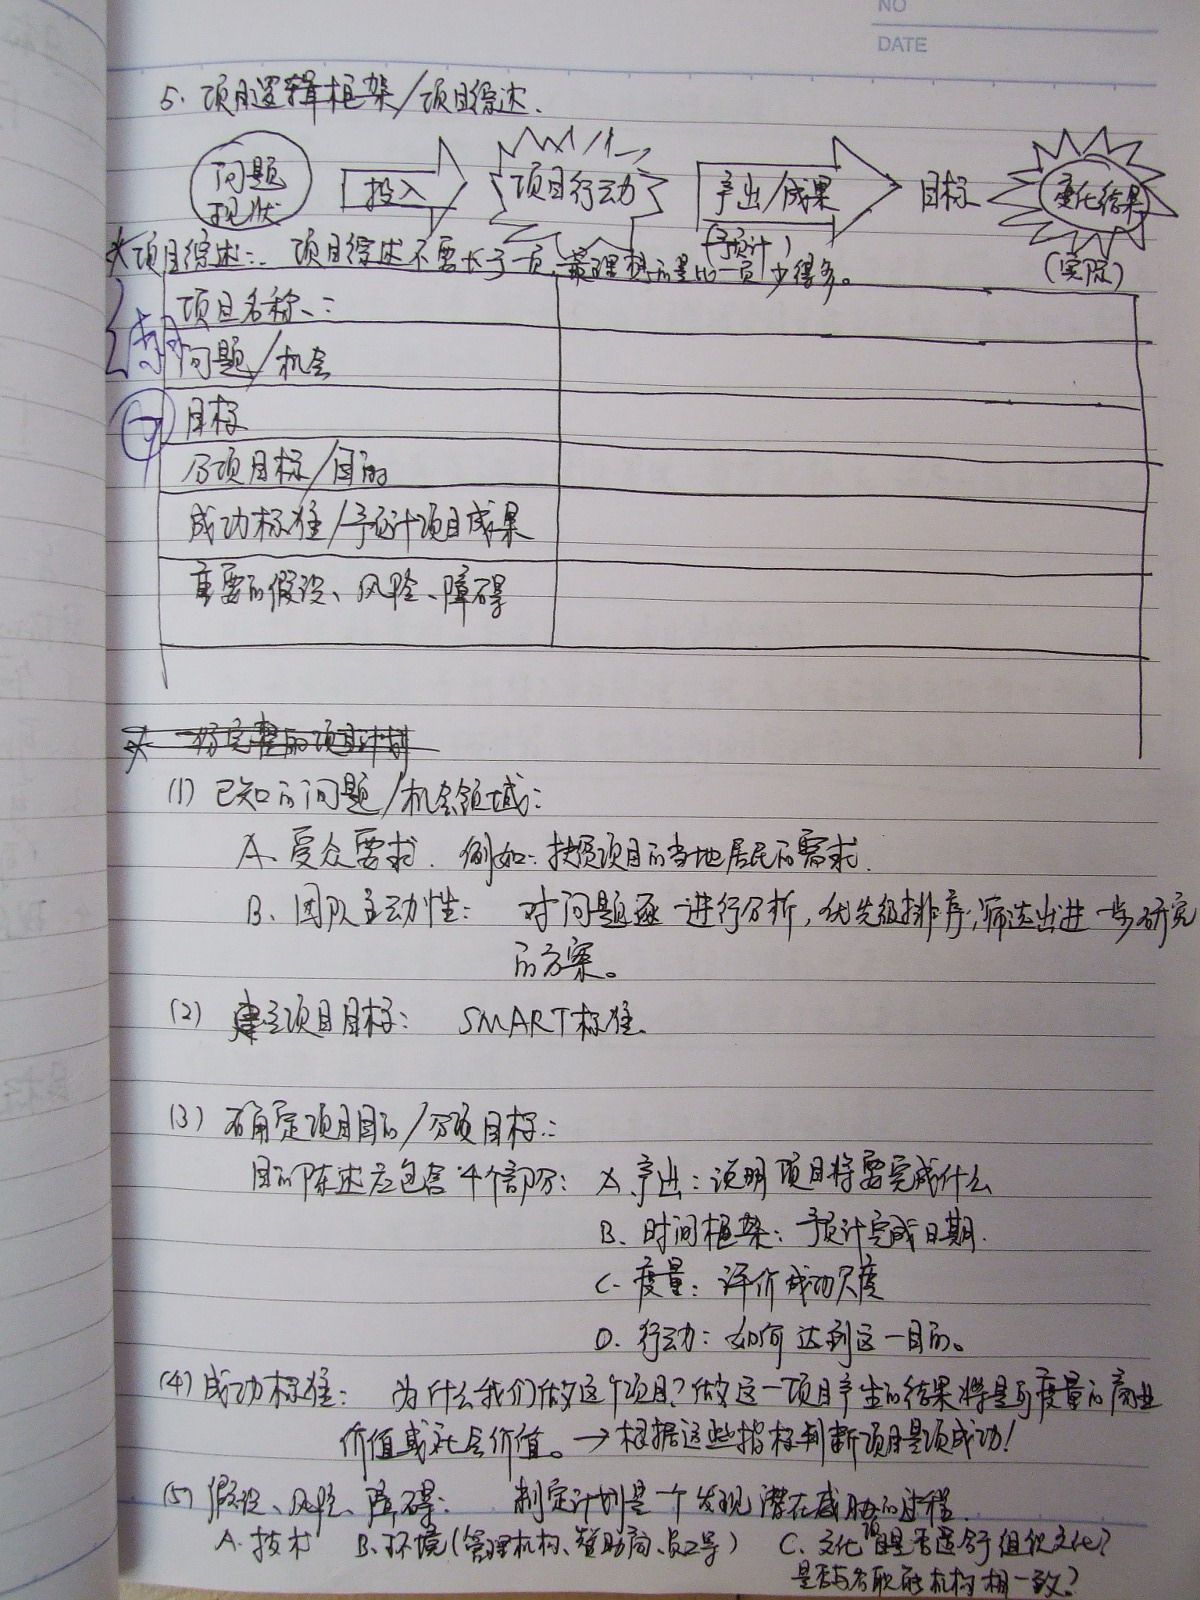 NO
DATE
5. 项目逻辑框架/项目综述.
问题现状 投入 项目行动 产出/成果 (预计) 目标 变化结果 (实际)
*项目综述: 项目综述不要长于一页,最理想的是比一页少得多。
项目名称:
问题/机会
目标
分项目标/目的
成功标准/予预计项目成果
重要的假设、风险、障碍
* 一份完整的项目计划
(1) 已知的问题/机会领域:
A. 受众要求. 例如:扶贫项目的当地居民的需求.
B. 团队主动性: 对问题逐一进行分析,优先级排序,筛选出进一步研究
的方案。
(2) 建立项目目标: SMART标准.
(3) 确定项目目的/分项目标:
目的陈述应包含4个部分: A.产出:说明项目将要完成什么
B. 时间框架:预计完成日期.
C. 度量:评价成功尺度
D. 行动:如何达到这一目的。
(4) 成功标准: 为什么我们做这个项目?做这一项目产生的结果将是可度量的商业
价值或社会价值。→根据这些指标判断项目是项成功!
(5) 假设、风险、障碍: 制定计划是一个发现潜在威胁的过程.
A. 技术 B. 环境(管理机构、赞助商、员工等) C. 文化 项目是否适合于组织文化?
是否与各职能机构相一致?